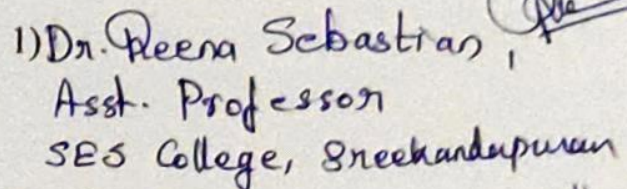 1) Dr. Reena Sebastian,
Asst. Professor
SES College, Sreekandapuram